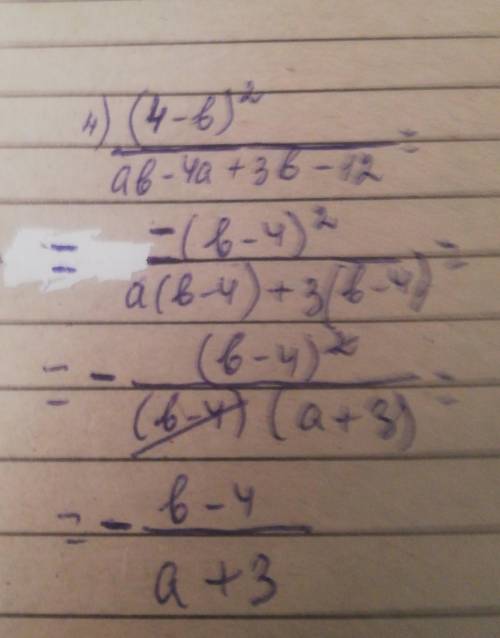 4) (4-b)² / ab-4a+3b-12 =
= -(b-4)² / a(b-4)+3(b-4) =
= - (b-4)² / (b-4)(a+3) =
= - b-4 / a+3